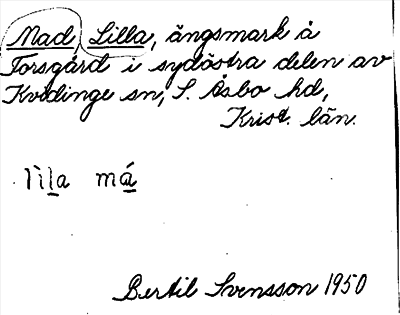 Mad, Lilla, ängsmark å
Torsgård i sydöstra delen av
Kvidinge sn, S. Åsbo hd,
Krist. län.
lìl̲a má̲
Bertil Svensson 1950